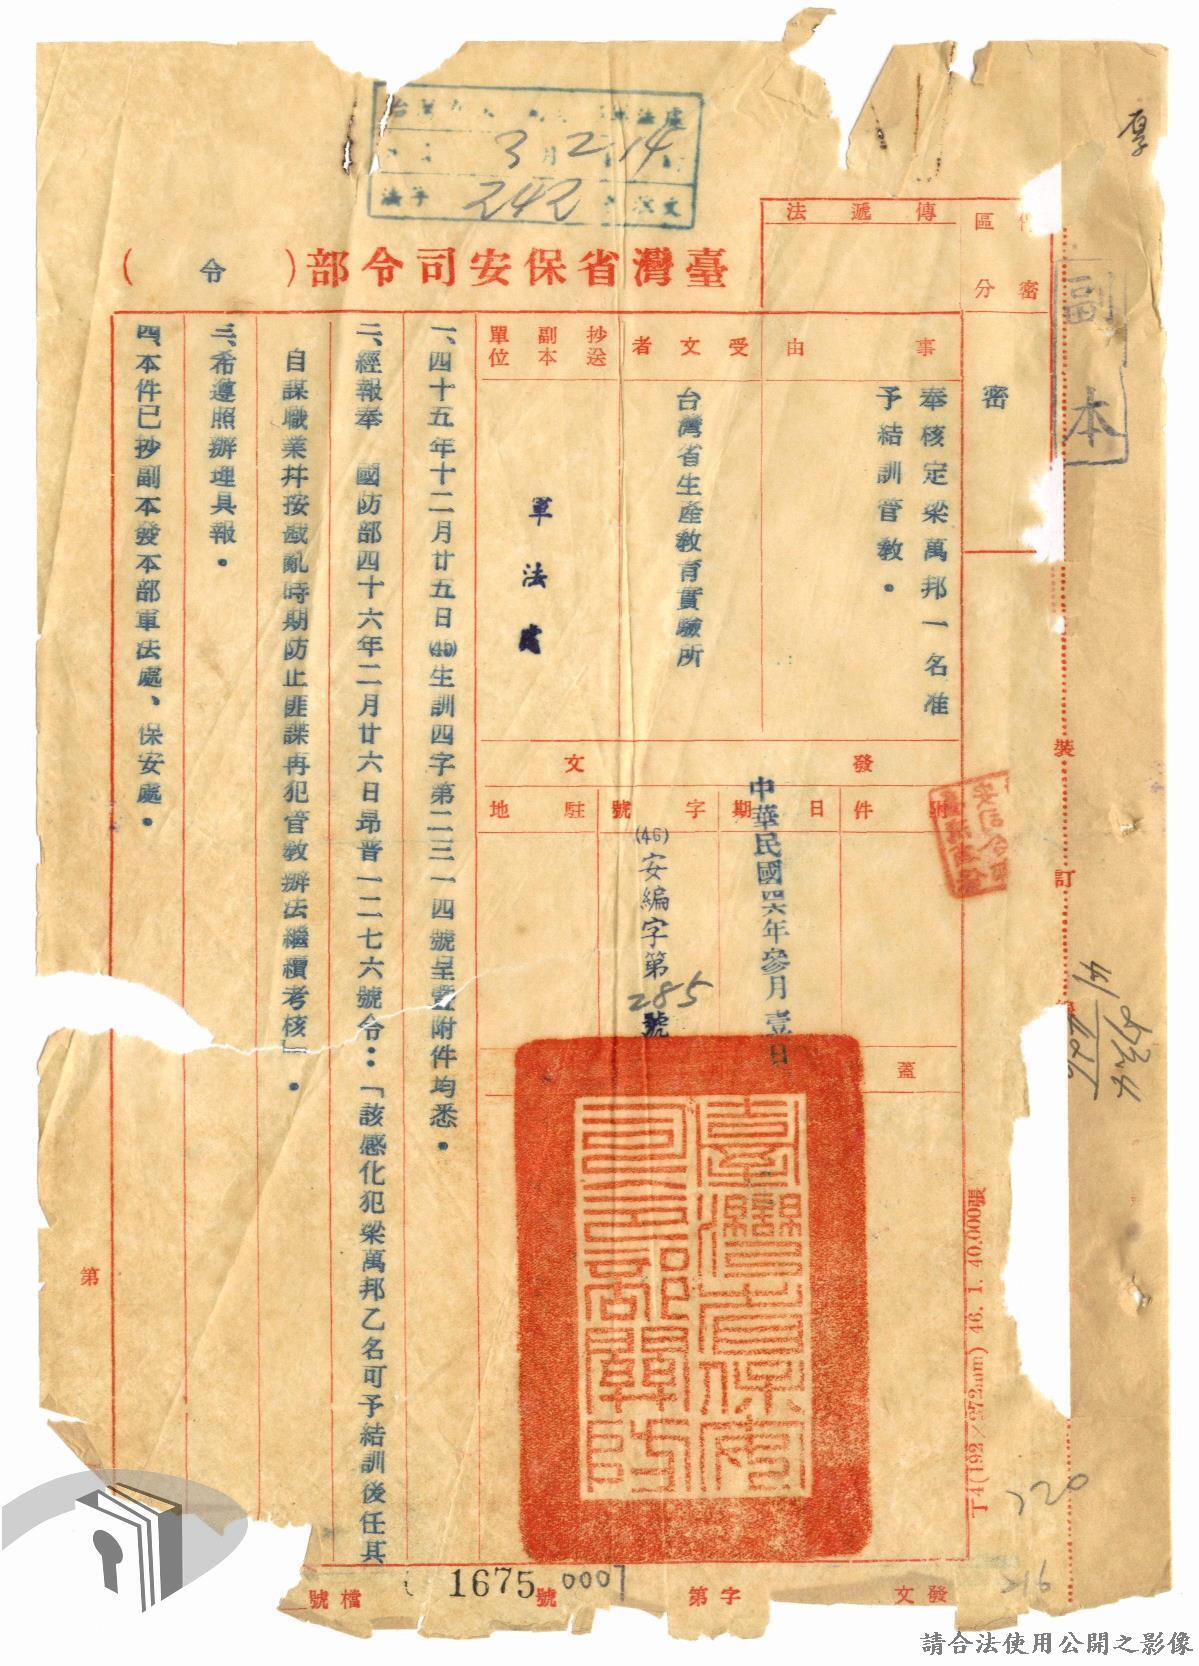 厚
副本
法處
3月2 14
法字 242 文
臺灣省保安司令部（令）
傳遞法
區分
密
密
事由
奉核定梁萬邦一名准
予結訓管教。
受文者
台灣省生產教育實驗所
抄送副本單位
軍法處
發文
附件
日期
中華民國四六年參月壹日
字號
(46)安編字第285號
駐地
蓋
臺灣省保安司令部關防
一、四十五年十二月廿五日(45)生訓四字第二三一四號呈暨附件均悉。
二、經報奉　國防部四十六年二月廿六日昂晋一二七六號令：「該感化犯梁萬邦乙名可予結訓後任其
自謀職業幷按戡亂時期防止匪諜再犯管教辦法繼續考核」。
三、希遵照辦理具報。
四、本件已抄副本發本部軍法處、保安處。
裝
訂
T4(192×272mm) 46. 1. 40,000張
720
216
第
發文
字第
1675號 0007
檔號
請合法使用公開之影像